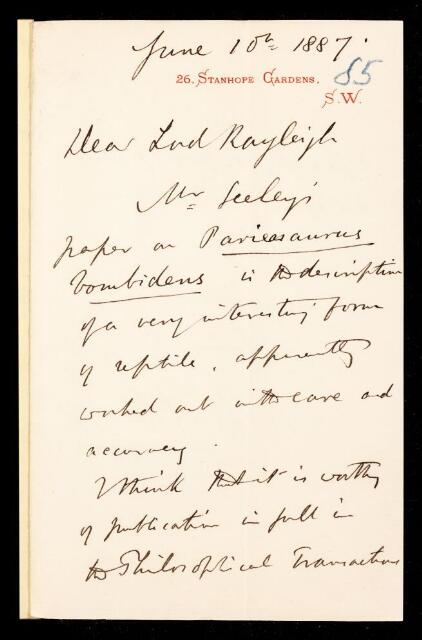 June 10th 1887.
26, STANHOPE GARDENS,
85
S.W.
Dear Lord Rayleigh
Mr Seeley's
paper on Pariasaurus
bombidens is the description
of a very interesting form
of reptile, apparently
worked out with care and
accuracy.
I think that it is worthy
of publication in full in
the Philosophical Transactions